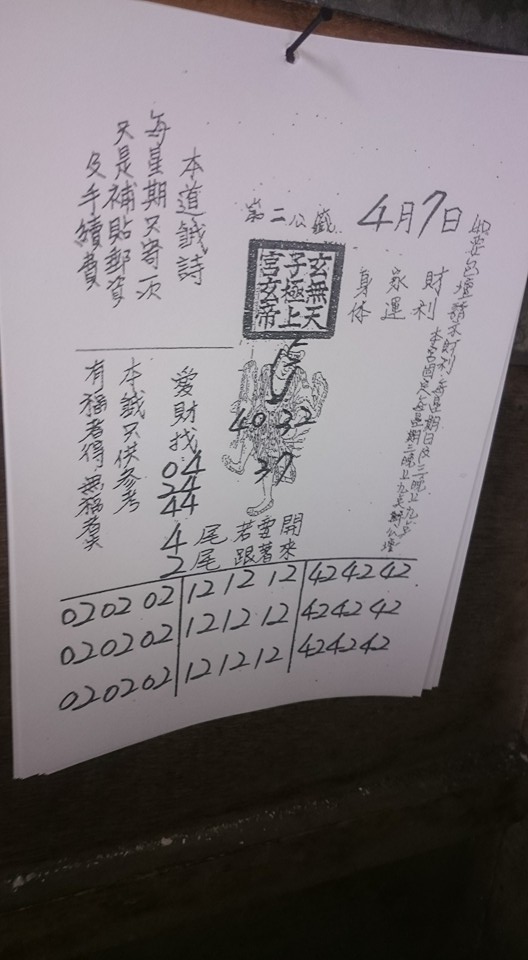 如要公壇請求財利每星期日及三晚上九点
本宮固定每星期三晚上九点辦公壇
4月7日
財利
家運
身体
第二公籤
玄無天
子極上
宮玄帝
40 32
37
愛財找
04
24
44
4尾若愛開
2尾跟著來
本道籤詩
每星期只寄一次
只是補貼郵資
及手續費
本籤只供參考
有福者得無福者失
02 02 02 12 12 12 42 42 42
02 02 02 12 12 12 42 42 42
02 02 02 12 12 12 42 42 42